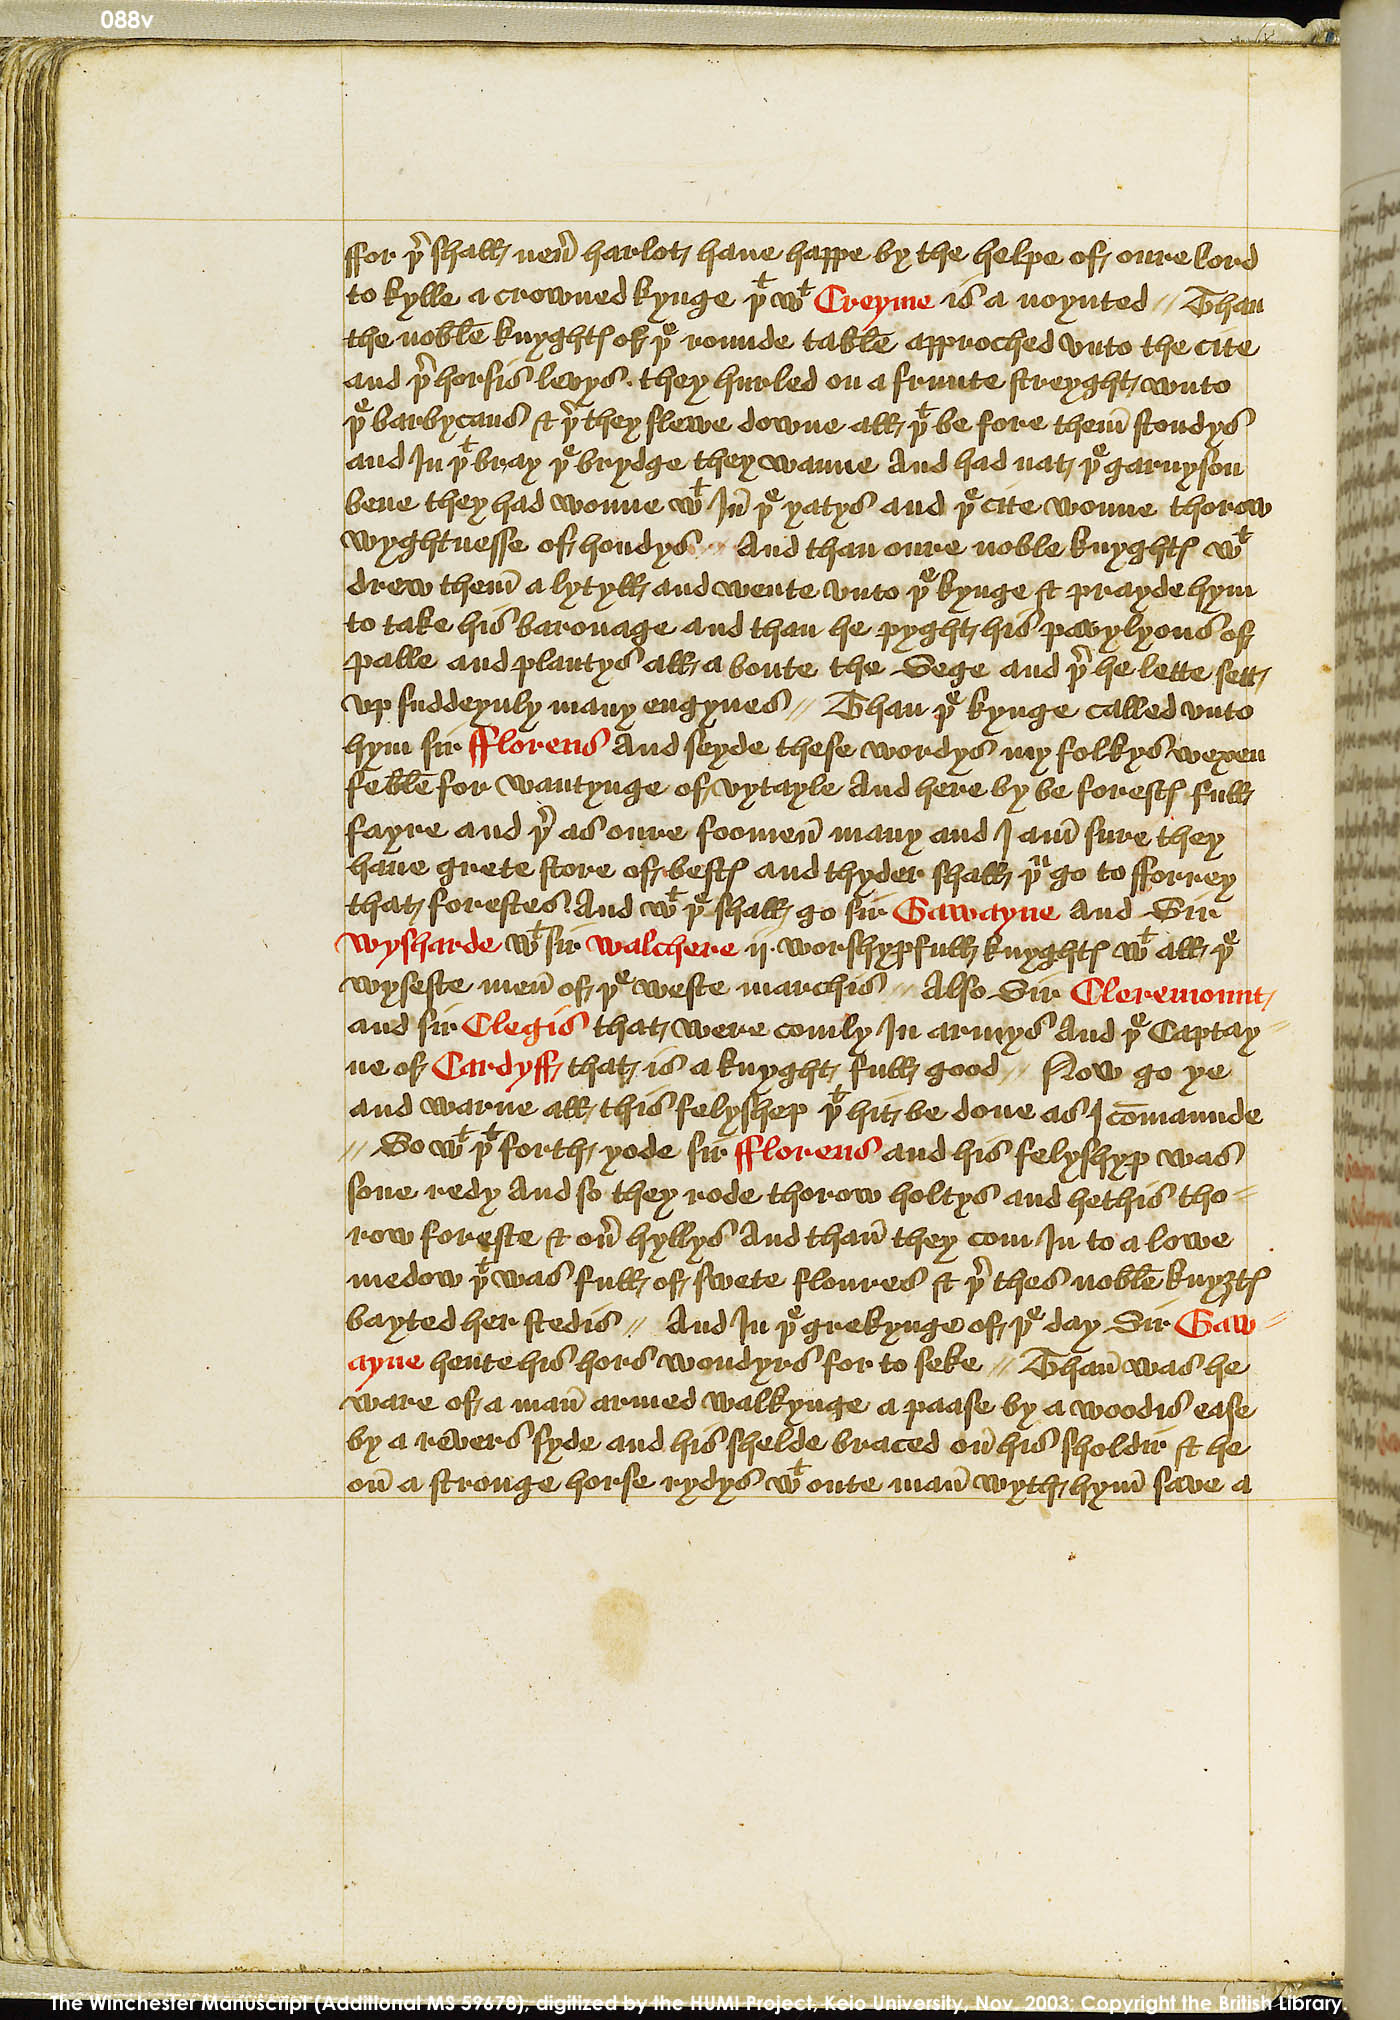 088v
ffor þͬ shall neuͬ harlot haue happe by the helpe of oure lord
to kylle a crowned kynge þͭ wͭ Creyme is a noynted // Than
the noble knyghtes of þͤ rounde table approched vnto the cite
and þͬ horsis levys . they hurled on a frunte streyght vnto
þͤ barbycans & þͬ they slewe downe all þͭ be fore them̄ stondys
and In þͭ bray þͤ brydge they wanne And had nat þͤ garnyson
bene they had wonne wͭ In̄ þͤ yatys and þͤ cite wonne thorow
wyghtnesse of hondys // And than oure noble knyghtes wͭ
drew them̄ a lytyll and wente vnto þͤ kynge & prayde hym
to take his baronage and than he pyght his pavylyons of
palle and plantys all a boute the Sege and þͬ he lette sett
vp suddeynly many engynes // Than þͤ kynge called vnto
hym sir fflorens And seyde these wordys my folkys wexen
feble for wantynge of vytayle And here by be forestes full
fayre and þͬ as oure foomen̄ many and I am̄ sure they
haue grete store of bestes and thyder shall þͧ go to fforrey
that forestes And wͭ þͤ shall go sir Gawayne And Sir
wysharde wͭ sir walchere ij worshypfull knyghtes wͭ all þͤ
wyseste men̄ of þͤ weste marchis // Also Sir Cleremount
and sir Clegis that were comly In armys And þͤ Captay=
ne of Cardyff that is a knyght full good // Now go ye
and warne all this felyshep þͭ hit be done as I com̄aunde
// So wͭ þͭ forth yode sir fflorens and his felyshyp was
sone redy And so they rode thorow holtys and hethis tho=
row foreste & ouͬ hyllys And than̄ they com In to a lowe
medow þͭ was full of swete floures & þͬ thes noble knyȝtes
bayted her stedis // And In þͤ grekynge of þͤ day Sir Gaw=
ayne hente his hors wondyrs for to seke // Than̄ was he
ware of a man̄ armed walkynge a paase by a woodis ease
by a revers syde and his shelde braced on̄ his sholdir & he
on̄ a stronge horse rydys wͭ oute man̄ wyth hym̄ save a
The Winchester Manuscript (Additional MS 59678), digitized by the HUMI Project, Keio University, Nov, 2003; Copyright the British Library.